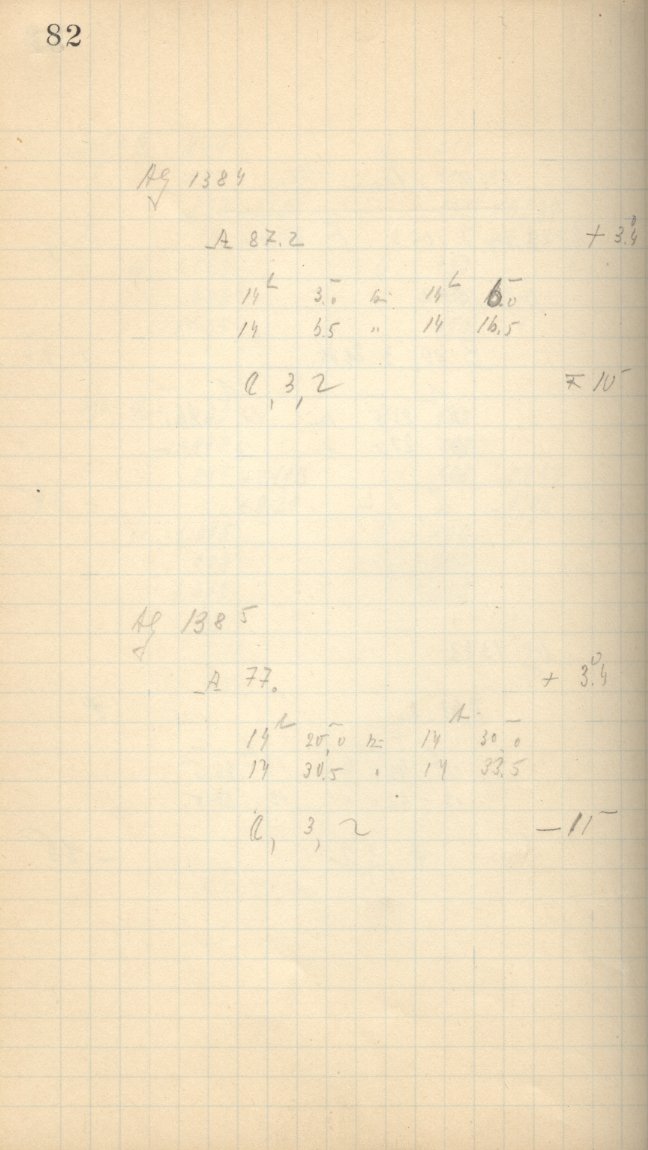 82
Ag 1384
A 87.2 + 3°.4
14h 3m.0 to 14h 6m.0
14 6.5 " 14 16.5
a, 3, 2 10m
Ag 1385
A 77. + 3°.4
14h 20m.0 to 14h 30m.0
14 30.5 " 14 33.5
a, 3, 2 — 11m